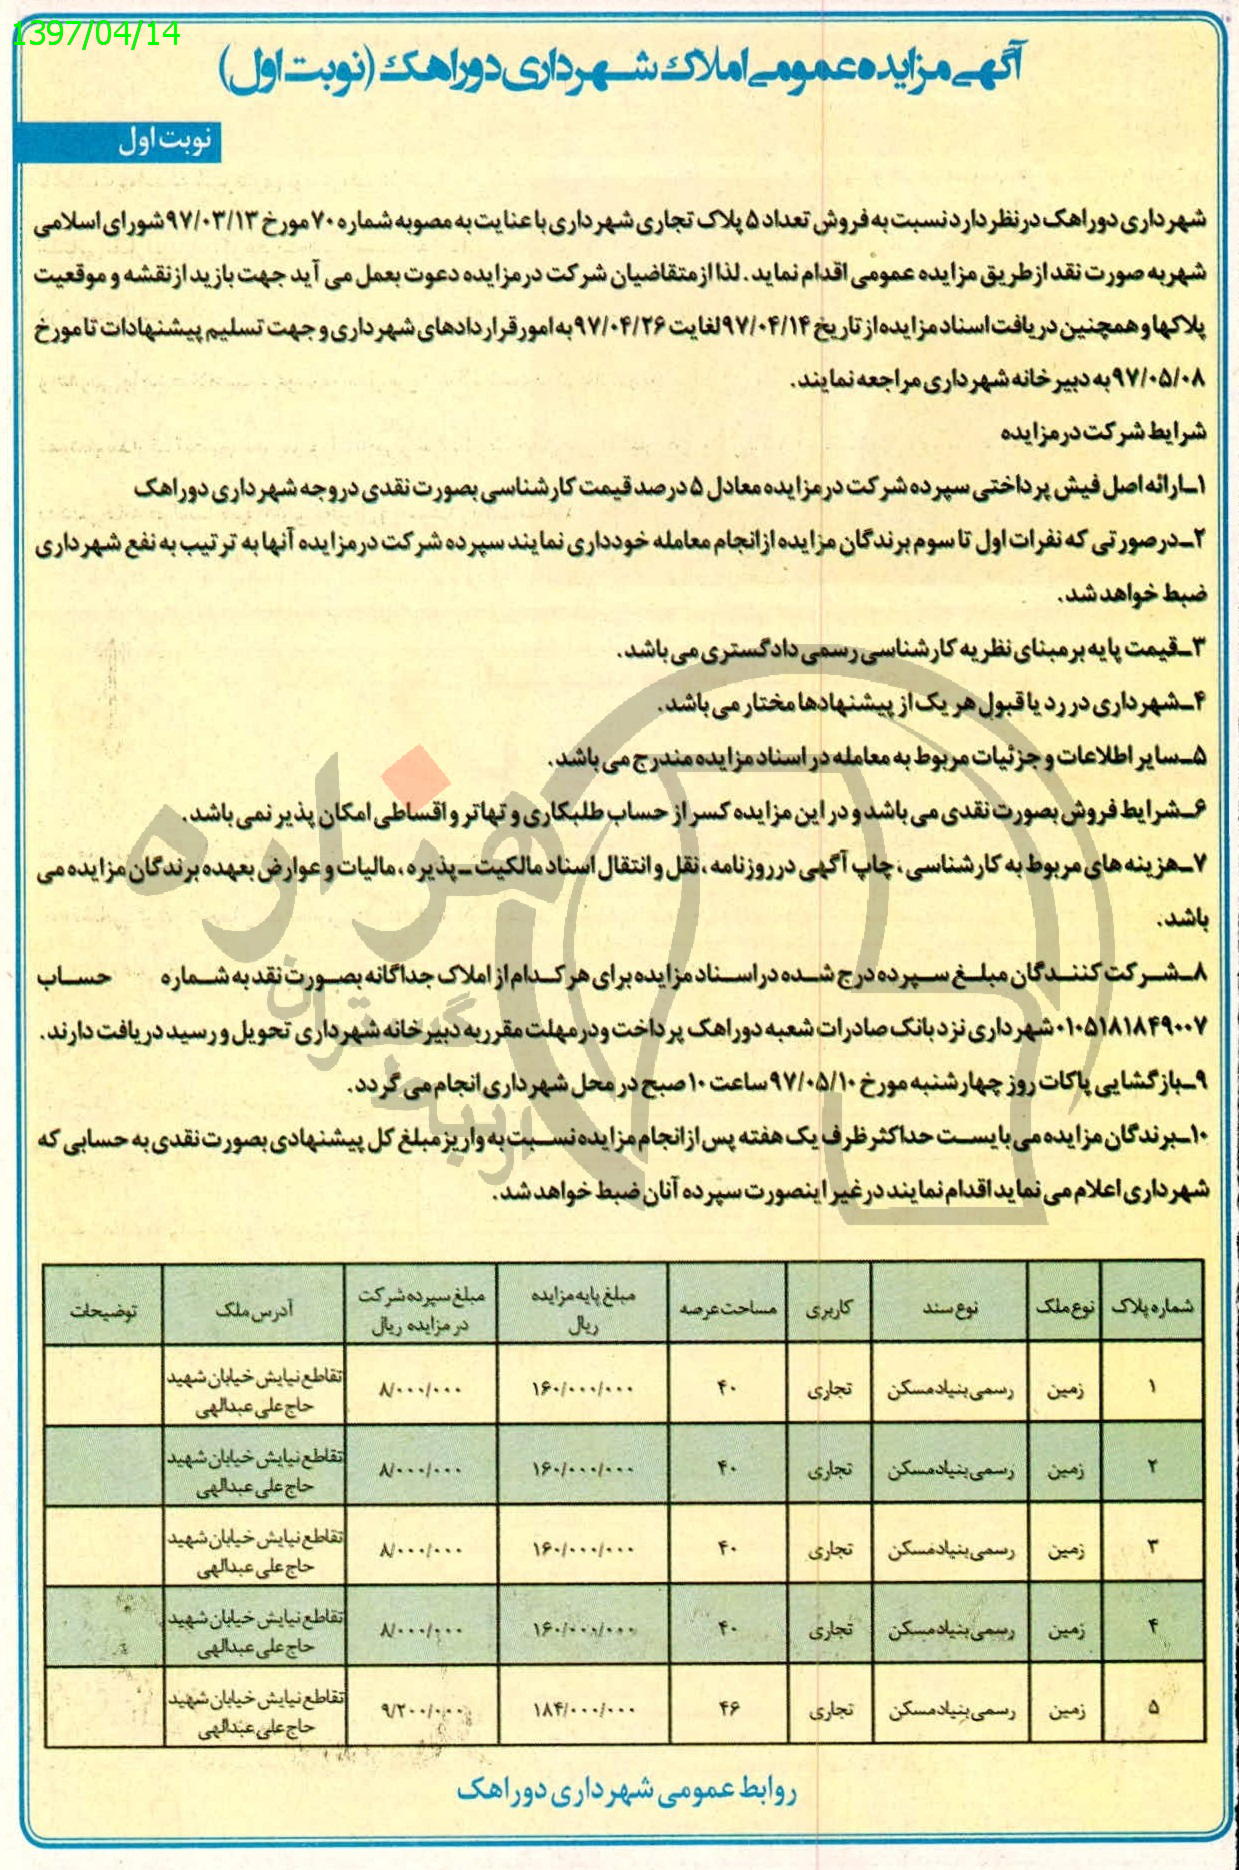 1397/04/14
آگهی مزایده عمومی املاک شهرداری دوراهک (نوبت اول)
نوبت اول
شهرداری دوراهک در نظر دارد نسبت به فروش تعداد ۵ پلاک تجاری شهرداری با عنایت به مصوبه شماره ۷۰ مورخ ۹۷/۰۳/۱۳ شورای اسلامی
شهر به صورت نقد از طریق مزایده عمومی اقدام نماید. لذا از متقاضیان شرکت در مزایده دعوت بعمل می آید جهت بازید از نقشه و موقعیت
پلاکها و همچنین دریافت اسناد مزایده از تاریخ ۹۷/۰۴/۱۴ لغایت ۹۷/۰۴/۲۶ به امور قراردادهای شهرداری و جهت تسلیم پیشنهادات تا مورخ
۹۷/۰۵/۰۸ به دبیرخانه شهرداری مراجعه نمایند.
شرایط شرکت در مزایده
۱ـ ارائه اصل فیش پرداختی سپرده شرکت در مزایده معادل ۵ درصد قیمت کارشناسی بصورت نقدی در وجه شهرداری دوراهک
۲ـ در صورتی که نفرات اول تا سوم برندگان مزایده از انجام معامله خودداری نمایند سپرده شرکت در مزایده آنها به ترتیب به نفع شهرداری
ضبط خواهد شد.
۳ـ قیمت پایه بر مبنای نظریه کارشناسی رسمی دادگستری می باشد.
۴ـ شهرداری در رد یا قبول هر یک از پیشنهادها مختار می باشد.
۵ـ سایر اطلاعات و جزئیات مربوط به معامله در اسناد مزایده مندرج می باشد.
۶ـ شرایط فروش بصورت نقدی می باشد و در این مزایده کسر از حساب طلبکاری و تهاتر و اقساطی امکان پذیر نمی باشد.
۷ـ هزینه های مربوط به کارشناسی، چاپ آگهی در روزنامه، نقل و انتقال اسناد مالکیت ـ پذیره، مالیات و عوارض بعهده برندگان مزایده می
باشد.
۸ـ شرکت کنندگان مبلغ سپرده درج شده در اسناد مزایده برای هر کدام از املاک جداگانه بصورت نقد به شماره حساب
۰۱۰۵۱۸۱۸۴۹۰۰۷ شهرداری نزد بانک صادرات شعبه دوراهک پرداخت و در مهلت مقرر به دبیرخانه شهرداری تحویل و رسید دریافت دارند.
۹ـ بازگشایی پاکات روز چهارشنبه مورخ ۹۷/۰۵/۱۰ ساعت ۱۰ صبح در محل شهرداری انجام می گردد.
۱۰ـ برندگان مزایده می بایست حداکثر ظرف یک هفته پس از انجام مزایده نسبت به واریز مبلغ کل پیشنهادی بصورت نقدی به حسابی که
شهرداری اعلام می نماید اقدام نمایند در غیر اینصورت سپرده آنان ضبط خواهد شد.
شماره پلاک نوع ملک نوع سند کاربری مساحت عرصه مبلغ پایه مزایده ریال مبلغ سپرده شرکت در مزایده ریال آدرس ملک توضیحات
۱ زمین رسمی بنیاد مسکن تجاری ۴۰ ۱۶۰/۰۰۰/۰۰۰ ۸/۰۰۰/۰۰۰ تقاطع نیایش خیابان شهید حاج علی عبدالهی
۲ زمین رسمی بنیاد مسکن تجاری ۴۰ ۱۶۰/۰۰۰/۰۰۰ ۸/۰۰۰/۰۰۰ تقاطع نیایش خیابان شهید حاج علی عبدالهی
۳ زمین رسمی بنیاد مسکن تجاری ۴۰ ۱۶۰/۰۰۰/۰۰۰ ۸/۰۰۰/۰۰۰ تقاطع نیایش خیابان شهید حاج علی عبدالهی
۴ زمین رسمی بنیاد مسکن تجاری ۴۰ ۱۶۰/۰۰۰/۰۰۰ ۸/۰۰۰/۰۰۰ تقاطع نیایش خیابان شهید حاج علی عبدالهی
۵ زمین رسمی بنیاد مسکن تجاری ۴۶ ۱۸۴/۰۰۰/۰۰۰ ۹/۲۰۰/۰۰۰ تقاطع نیایش خیابان شهید حاج علی عبدالهی
روابط عمومی شهرداری دوراهک
هزاره